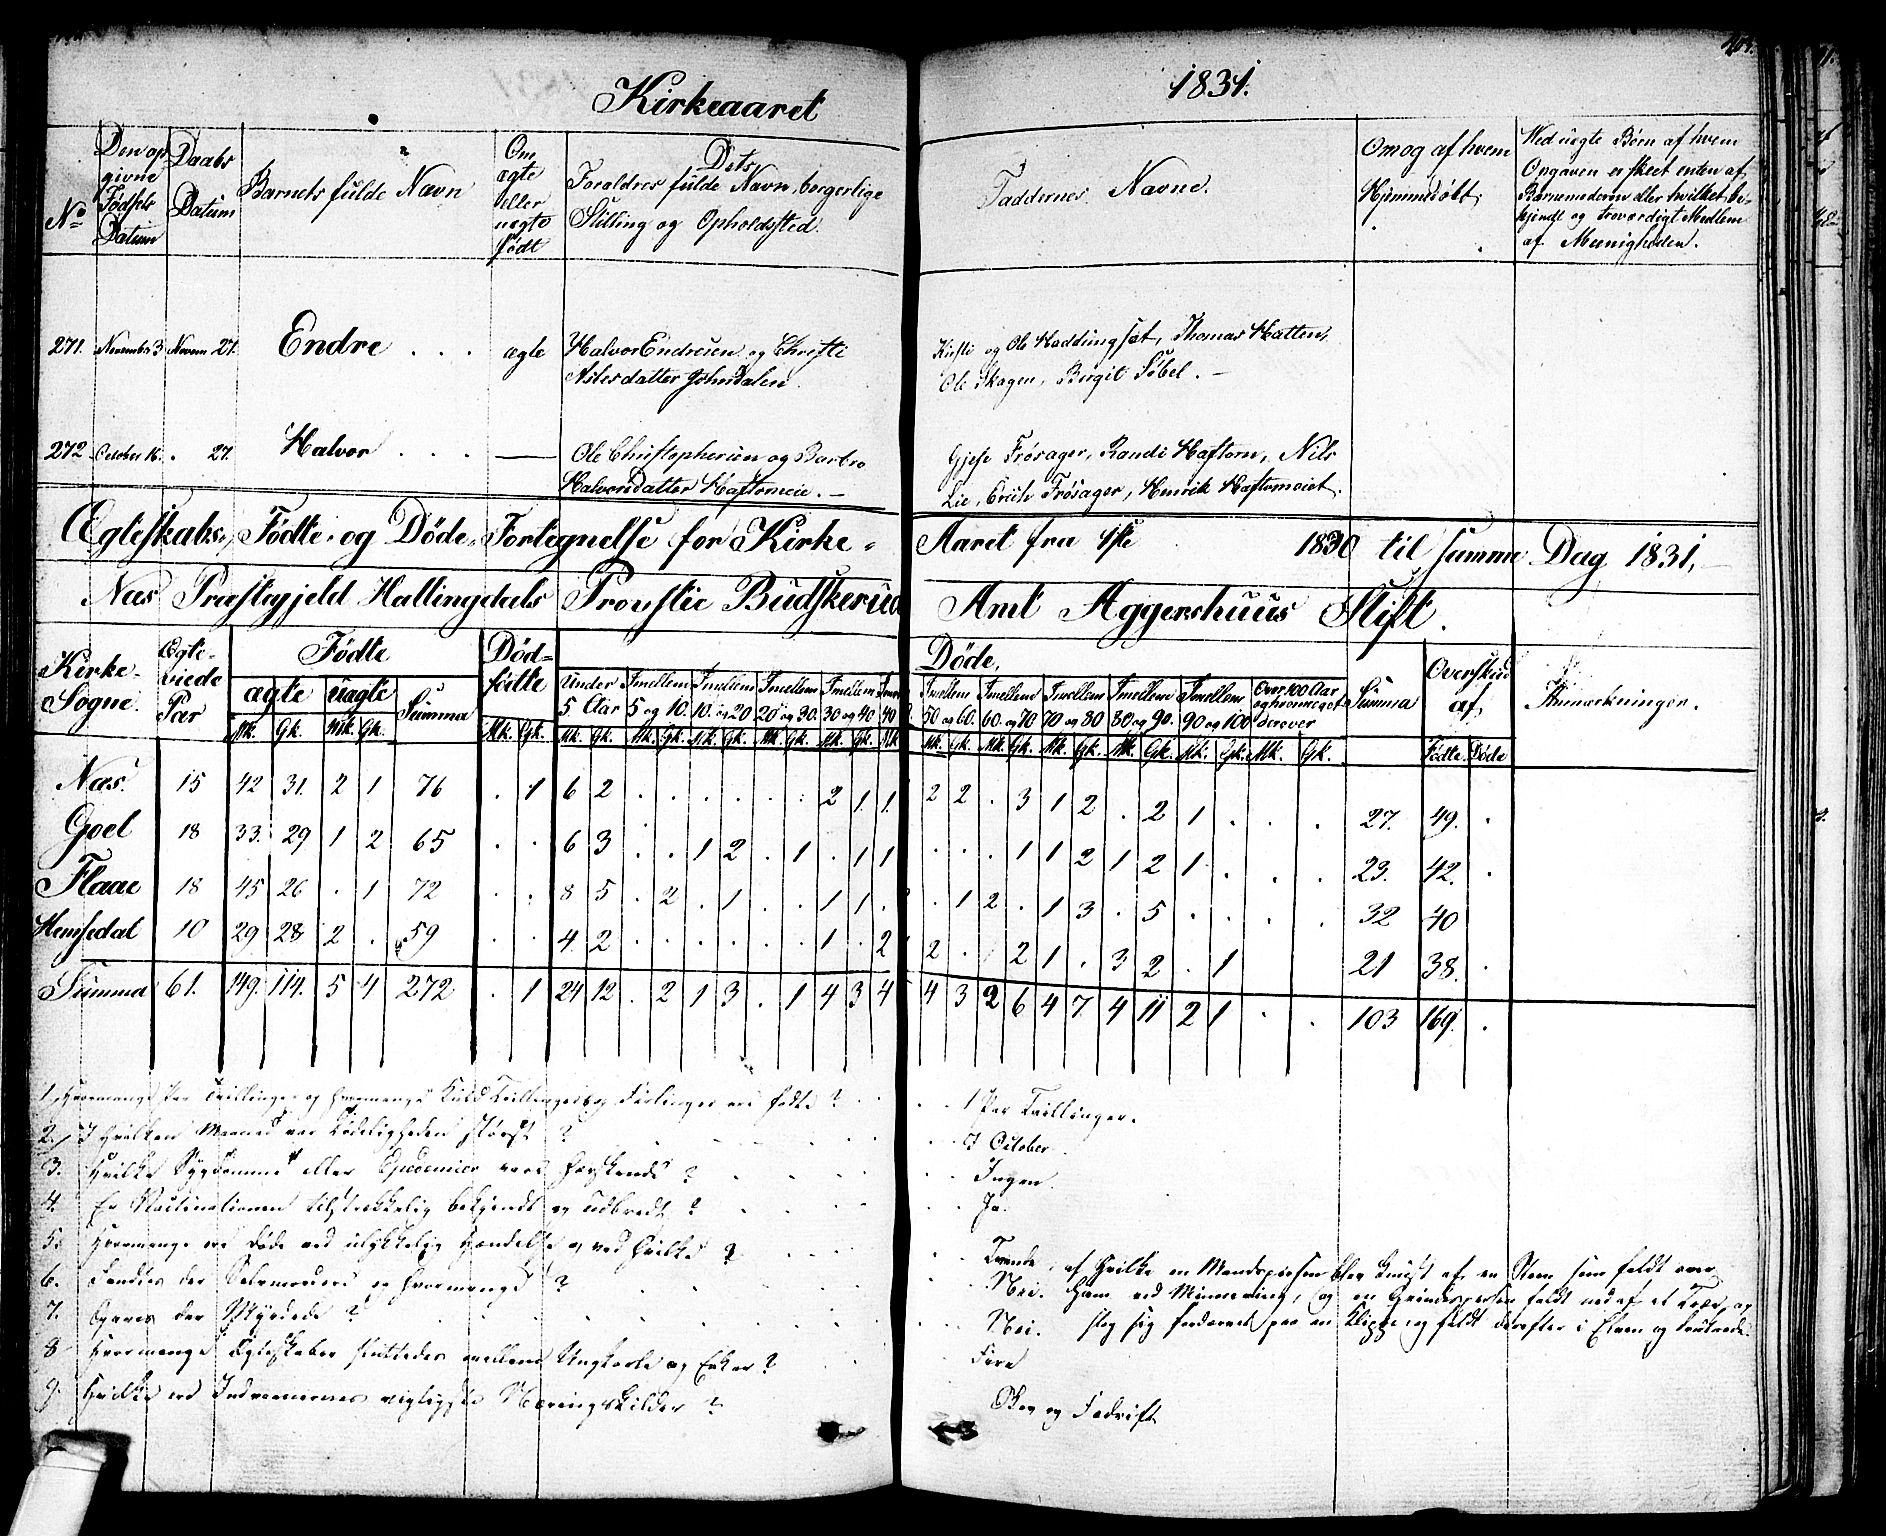 Kirkeaaret 1831.
No | Den opgivne Fødsels Datum | Daabs Datum | Barnets fulde Navn | Om ægte eller uægte født | Dets Forældres fulde Navn, borgerlige Stilling og Opholdssted. | Faddernes Navne. | Om og af hvem Hjemmedøbt | Ved uægte Børn af hvem Opgaven er skeet enten af Barnemoderen eller hvilket bekjendt og troværdigt Medlem af Meenigheden.
271. | November 3 | Novem 27. | Endre | ægte | Halvor Endresen og Christi
Nilsdatter Johndalen | Kirsti og Ole Haddingsæt, Thomas Hatten,
Ole Skagen, Birgit Søbel. –
272. | October 16. | 27. | Halvor | — | Ole Christophersen og Barbro
Halvorsdatter Haftorneie. – | Gjese Frøsager, Randi Haftorn, Nils
Lie, Frøsager, Henrik Haftorneiet.
Ægteskabs, Fødte- og Døde-Fortegnelse for Kirke-Aaret fra 1ste 1830 til samme Dag 1831, –
Næs Præstegjeld Hallingdals Provstie Budskeruds Amt Aggershuus Stift.
Kirke-Sogne. | Ægteviede Par | Fødte | Dødfødte | Døde, | Summa | Overskud af, | Anmærkninger.
ægte | uægte | Summa | Under 5 Aar | Imellem 5 og 10. | Imellem 10. og 20 | Imellem 20 og 30. | Imellem 30 og 40 | 40 | Imellem 50 og 60. | Imellem 60. og 70 | Imellem 70 og 80 | Imellem 80 og 90. | Imellem 90 og 100 | Over 100 Aar og hvormeget derover
Mk. | Gk. | Mk. | Gk. | Mk. | Gk. | Mk. | Gk. | Mk. | Gk. | Mk. | Gk. | Mk. | Gk. | Mk. | Gk. | Mk | Mk. | Gk. | Mk. | Gk. | Mk. | Gk. | Mk. | Gk. | Mk. | Gk. | Mk. | Gk. | Fødte. | Døde
Næs. | 15 | 42 | 31. | 2 | 1 | 76 | . | 1 | 6 | 2 | . | . | . | . | . | . | 2 | 1. | 1. | 2 | 2 | . | 3 | 1 | 2 | . | 2 | 1 | . | . | . | 27. | 49. | .
Goel | 18 | 33. | 29 | 1 | 2 | 65 | . | . | 6 | 3 | . | . | 1 | 2 | . | 1 | . | 1 | 1 | . | . | . | 1 | 1 | 2 | 1 | 2 | 1 | . | . | . | 23. | 42. | .
Flaae | 18 | 45 | 26 | . | 1 | 72 | . | . | 8 | 5 | . | 2 | . | 1 | . | . | 1 | 1 | . | . | 1 | 2 | . | 1 | 3 | . | 5 | . | . | . | . | 32 | 40
Hemsedal | 10 | 29 | 28 | 2 | . | 59 | . | . | 4 | 2 | . | . | . | . | . | . | 1 | . | 2 | 2 | . | 2 | 1 | . | 3 | 2 | . | 1 | 21 | 38. | .
Summa | 61. | 149. | 114. | 5 | 4 | 272 | . | 1 | 24 | 12 | . | 2 | 1 | 3 | . | 1 | 4 | 3 | 4 | 4 | 3 | 2 | 6 | 4 | 7. | 4 | 11 | 2 | 1 | . | . | 103 | 169. | .
1, Hvormange Par Tvillinger og hvormange Kuld Trillinger og Fiirlinger ere fødte? . . 1 Par Tvillinger.
2. I hvilken Maaned var Dødeligheden størst? . . I October.
3. Hvilke Sygdomme eller Epidemier vare herskende? . . Ingen.
4. Er Vaccinationen tilstrækkelig bekjendt og udbredt? . . Ja.
5. Hvormange ere døde ved ulykkelig Hændelse og ved hvilke? . . Tvende, af hvilke en Mandsperson blev knust af en Steen som faldt over
ham ved Minnering, og en Qvindesperson faldt ned af et Træ og
slog sig fordærvet paa en Klippe og faldt derefter i Elven og druknede.
6. Fandtes der Selvmordere og hvormange? . . Nei.
7. Gaves der Myrdede? . . Nei.
8 Hvormange Ægteskaber sluttedes mellem Ungkarle og Enker? . . Fire
9. Hvilke ere Indvaanernes vigtigste Næringskilder? . . Korn og Fædrift